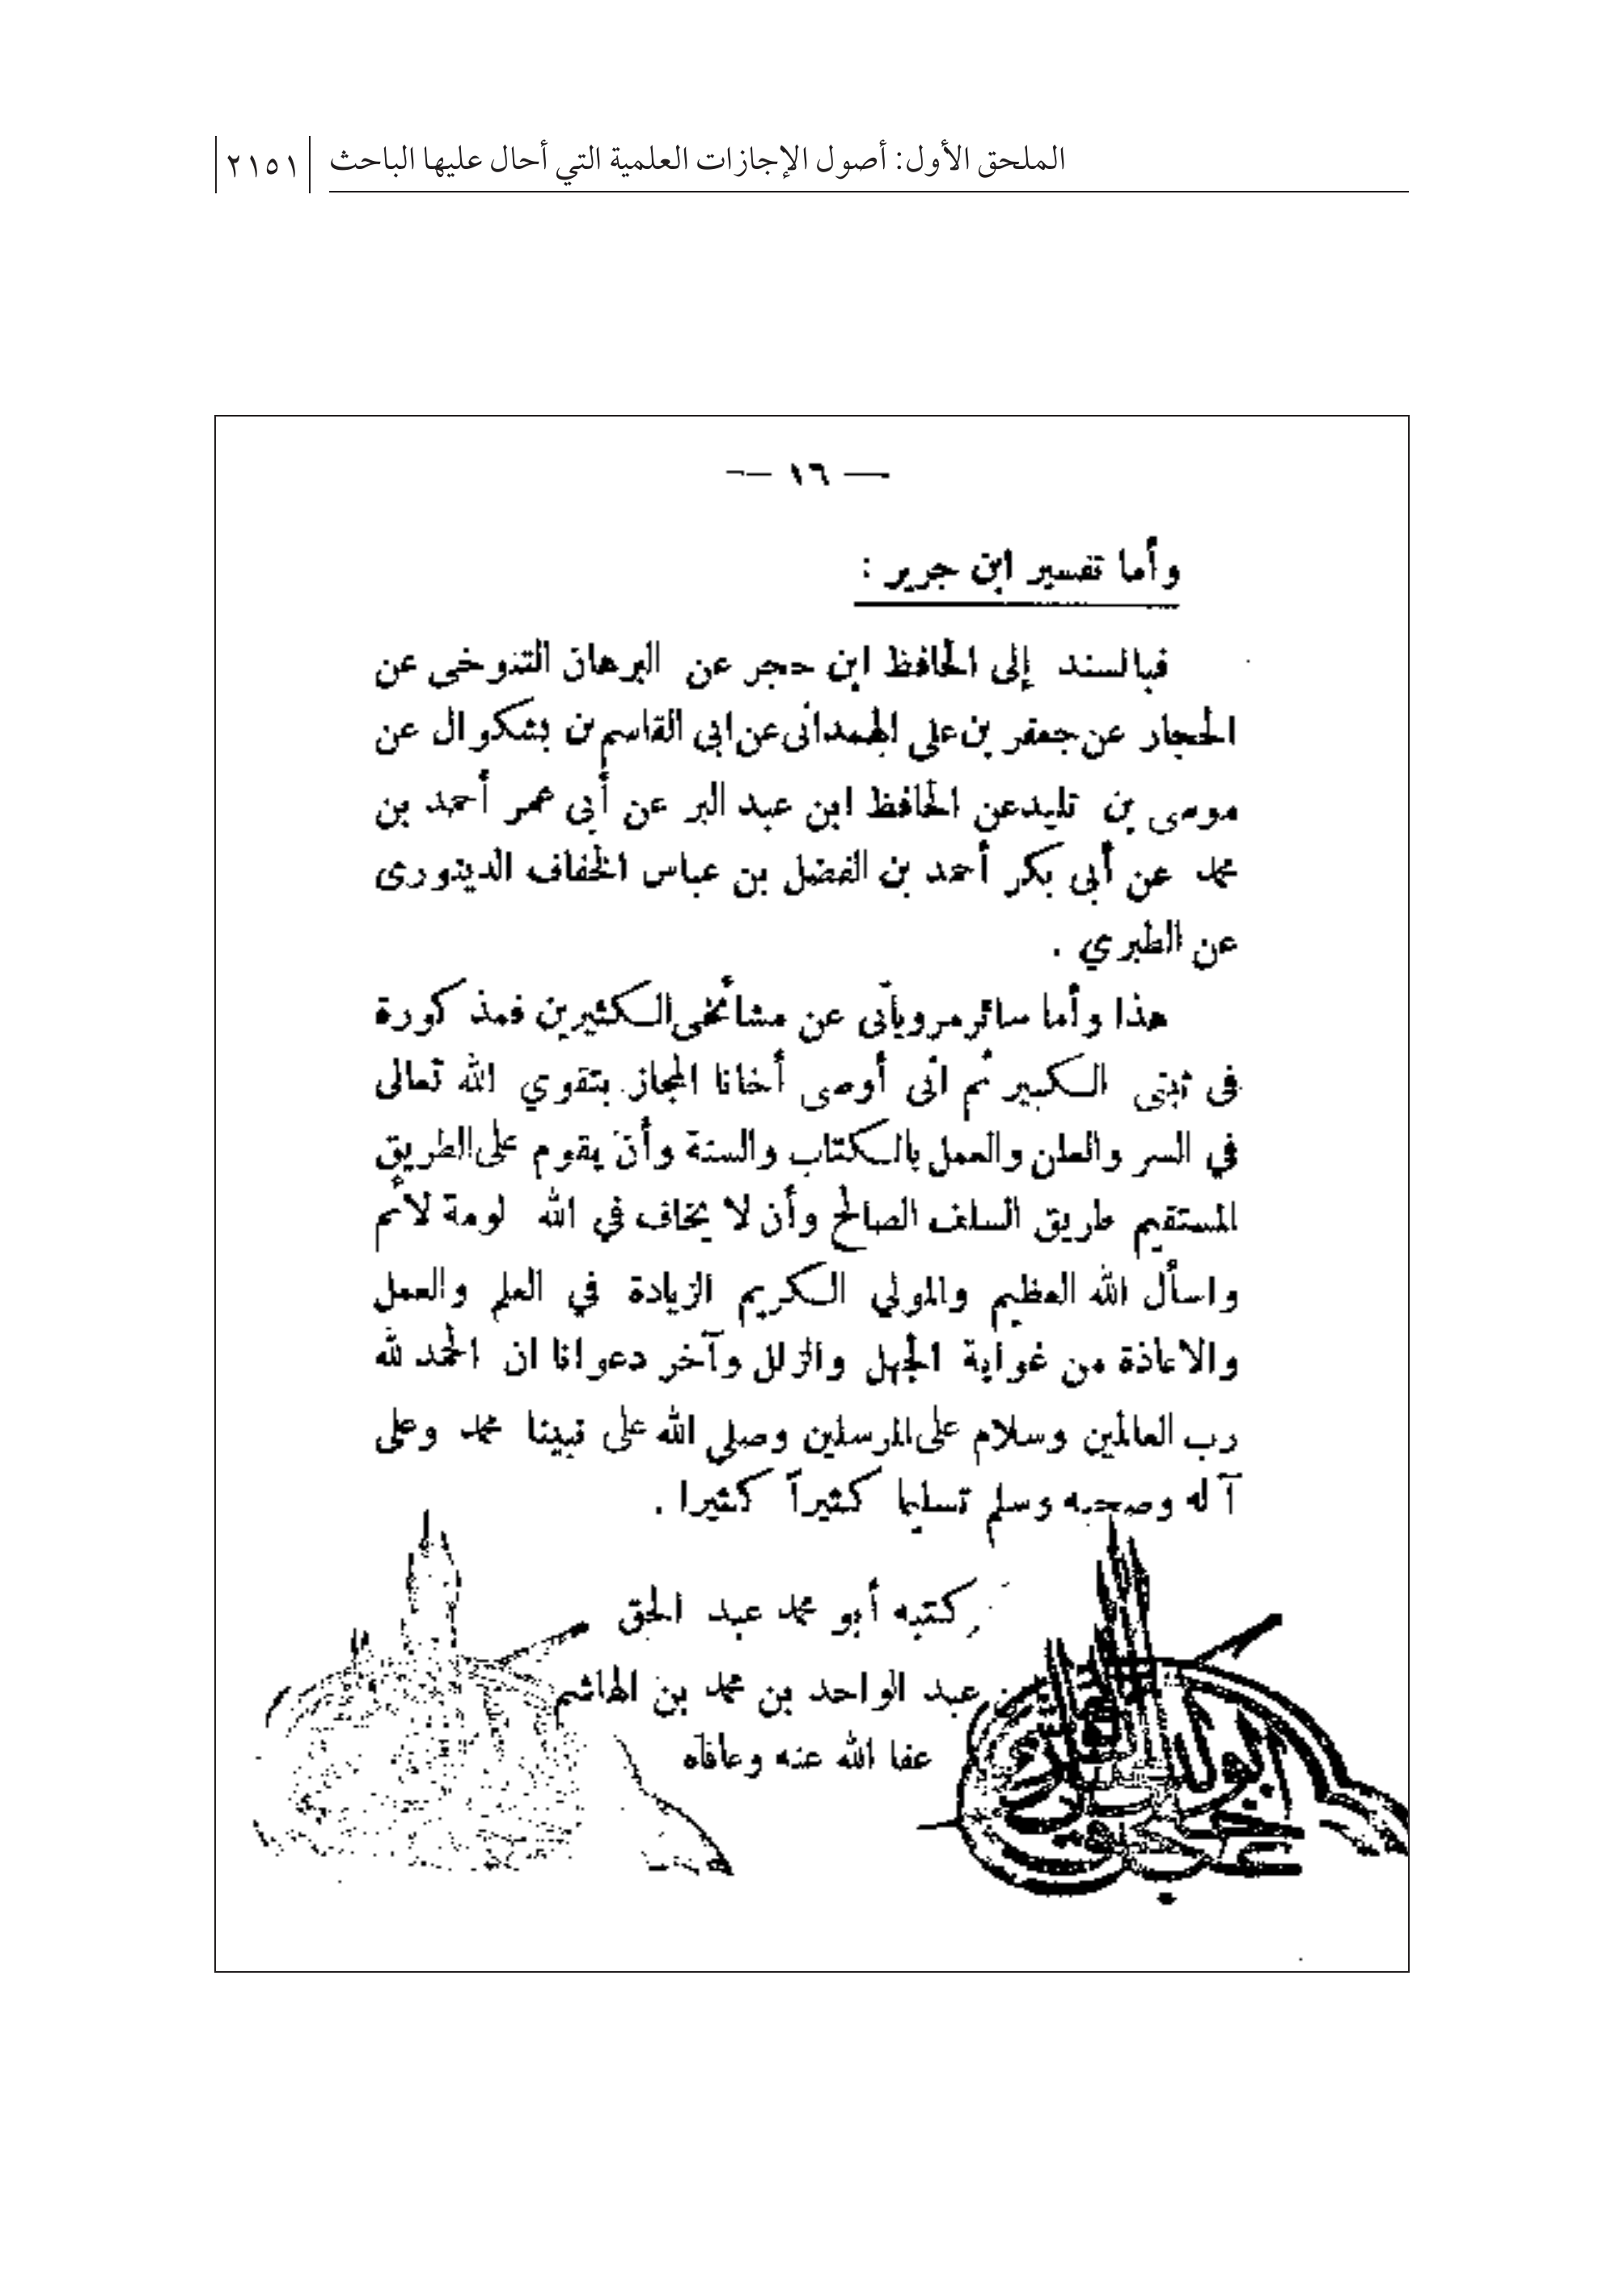 الملحق الأول: أصول الإجازات العلمية التي أحال عليها الباحث ٢١٥١
— ١٦ —
وأما تفسير ابن جرير :
فبالسند إلى الحافظ ابن حجر عن البرهان التنوخى عن
الحجار عن جعفر بن على الهمدانى عن ابى القاسم بن بشكوال عن
موسى بن تليد عن الحافظ ابن عبد البر عن أبى عمر أحمد بن
محمد عن أبى بكر أحمد بن الفضل بن عباس الخفاف الدينورى
عن الطبري .
هذا وأما سائر مروياتى عن مشائخى الكثيرين فمذكورة
فى ثبتى الكبير ثم انى أوصى أخانا المجاز بتقوي الله تعالى
في السر والعلن والعمل بالكتاب والسنة وأن يقوم على الطريق
المستقيم طريق السلف الصالح وأن لا يخاف في الله لومة لائم
واسأل الله العظيم والمولي الكريم الزيادة في العلم والعمل
والاعاذة من غواية الجهل والزلل وآخر دعوانا ان الحمد لله
رب العالمين وسلام على المرسلين وصلي الله على نبينا محمد وعلى
آله وصحبه وسلم تسليما كثيراً كثيرا .
كتبه أبو محمد عبد الحق
بن عبد الواحد بن محمد بن الهاشم
عفا الله عنه وعافاه